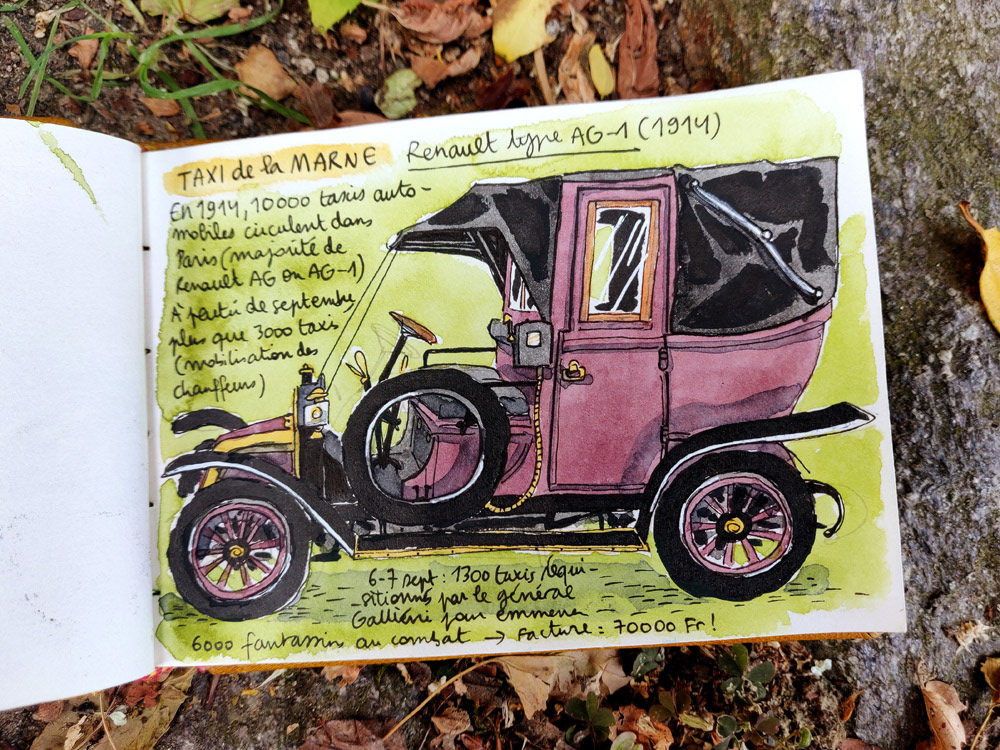 TAXI de la MARNE
Renault type AG-1 (1914)
En 1914, 10000 taxis auto-
mobiles circulent dans
Paris (majorité de
Renault AG ou AG-1)
À partir de septembre,
plus que 3000 taxis
(mobilisation des
chauffeurs)
6-7 sept : 1300 taxis réqui-
sitionnés par le général
Galliéni pour emmener
6000 fantassins au combat → Facture : 70000 Fr !